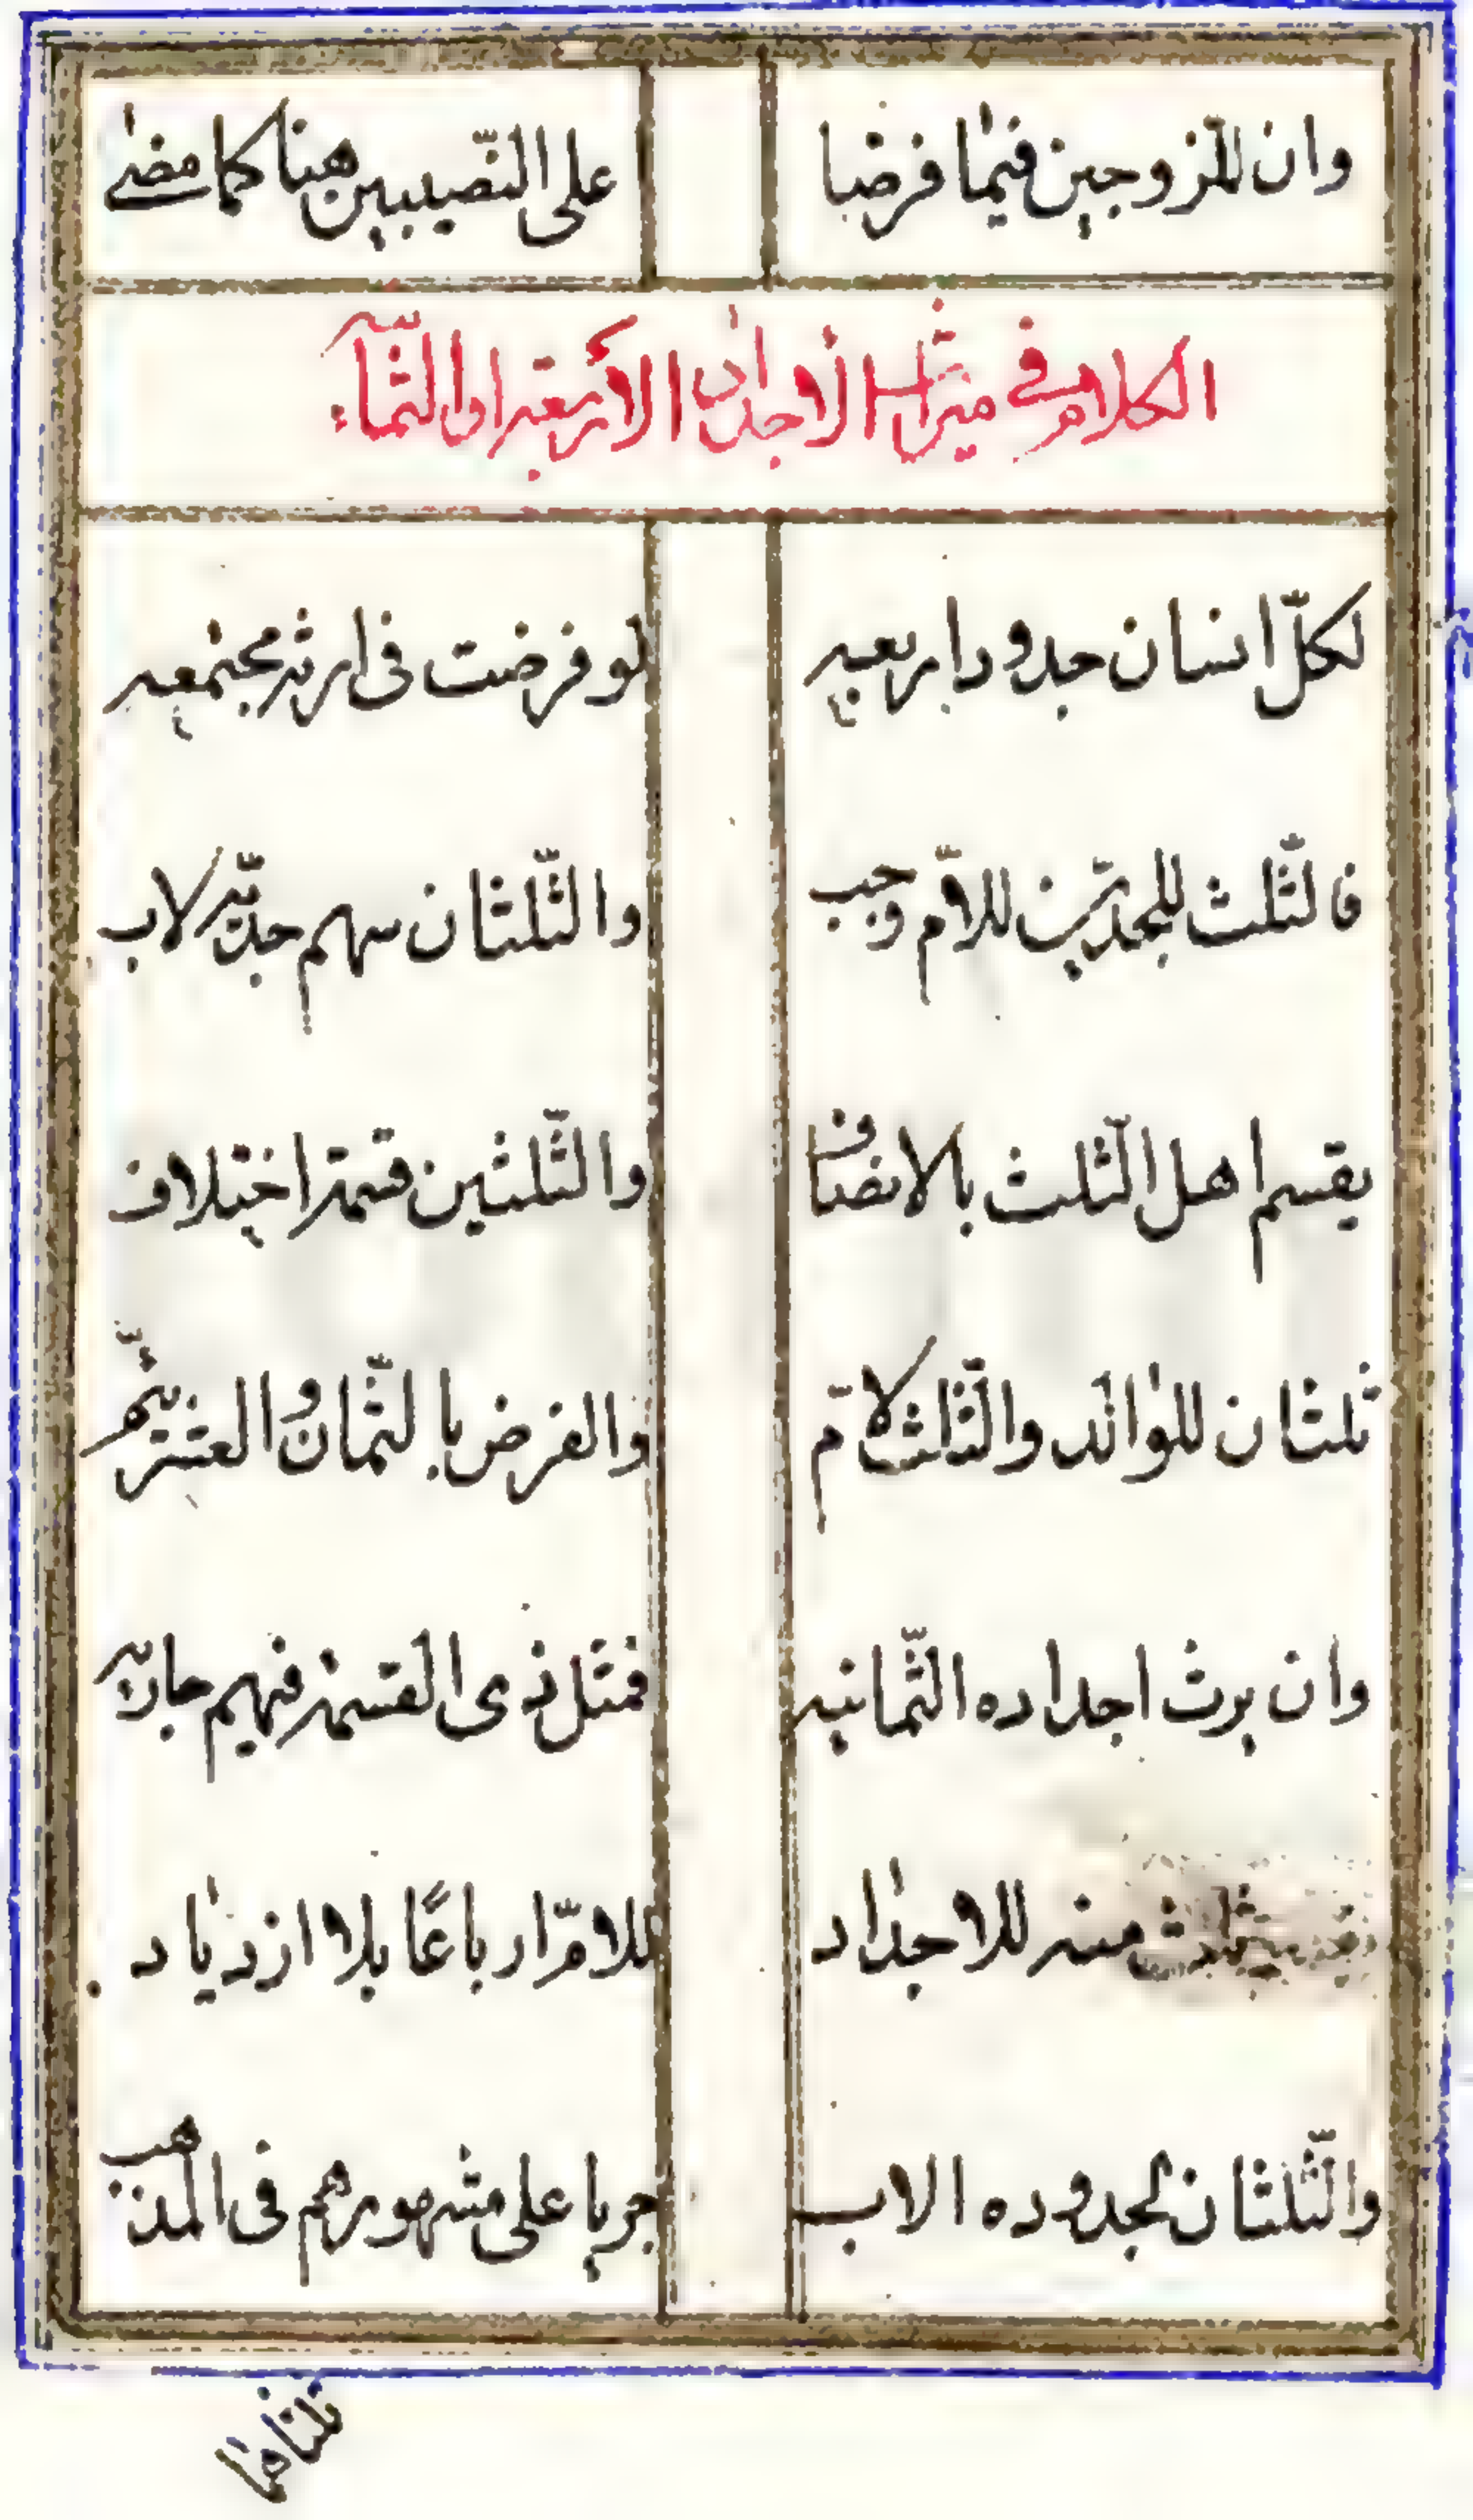 وان للزوجين فيما فرضا على النصيبين هنا كما مضى
الكلام في ميراث الأجداد الأربعة او الثمانية
لكلّ انسان جدود اربعه لو فرضت فى ارثه مجتمعه
فالثّلث للجدّين للامّ وجب والثّلثان سهم جدّيه لاب
يقسم اهل الثّلث بالانصاف والثّلثين قسمة اختلاف
ثلثان للوالد والثّلث لامّ والفرض بالثمان والعشر يتمّ
وان يرث اجداده الثّمانيه فمثل ذى القسمة فيهم جاريه
ثلث منه للاجداد للامّ ارباعًا بلا ازدياد
والثّلثان لجدوده الاب جريا على مشهورهم فى المذهب
ثلثاهما